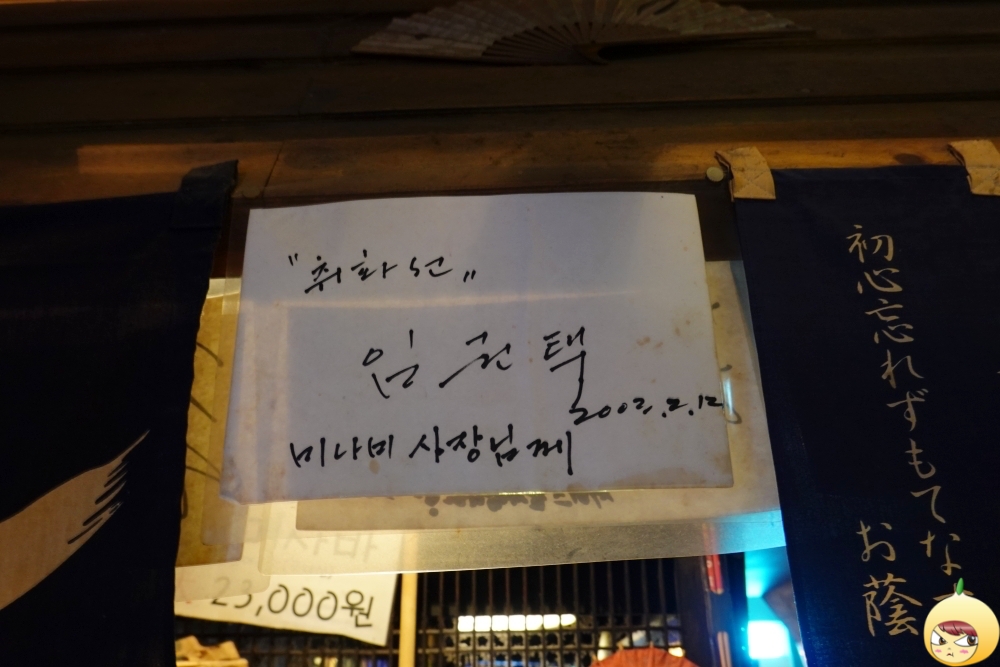 "취화선"
임권택
2002.2.12
미나미 사장님께
사바
23,000원
初心忘れずもてな
お蔭